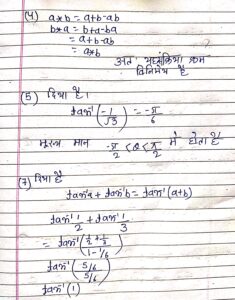 (4) a*b = a+b-ab
b*a = b+a-ba
= a+b-ab
= a*b
अतः संक्रिया क्रम
विनिमेय है
(5) दिया है।
tan⁻¹(-1/√3) = -π/6
मुख्य मान -π/2 < θ < π/2 में होता है
(7) दिया है
tan⁻¹a + tan⁻¹b = tan⁻¹(a+b)
tan⁻¹ 1/2 + tan⁻¹ 1/3
= tan⁻¹((1/2+1/3)/(1-1/6))
tan⁻¹((5/6)/(5/6))
tan⁻¹(1)